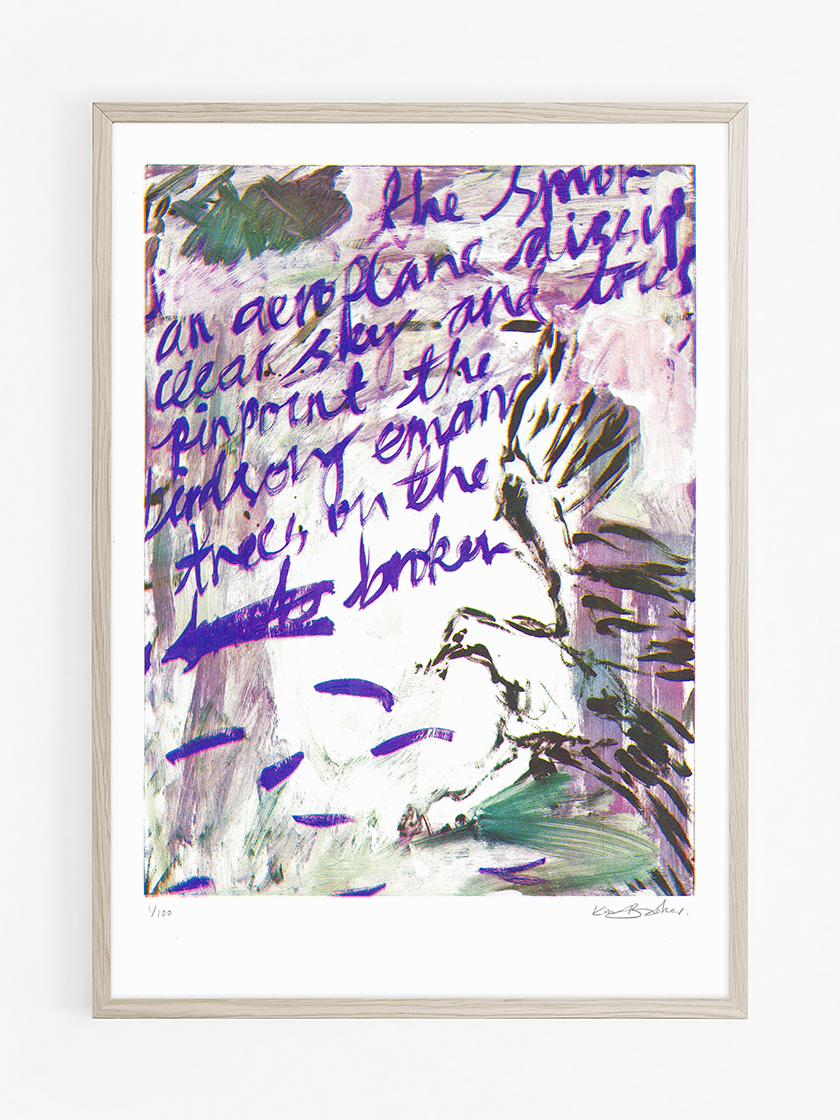 the smok
an aeroplane dissip
clear sky and tries
pinpoint the
birdsong eman
trees on the
broken
1/100